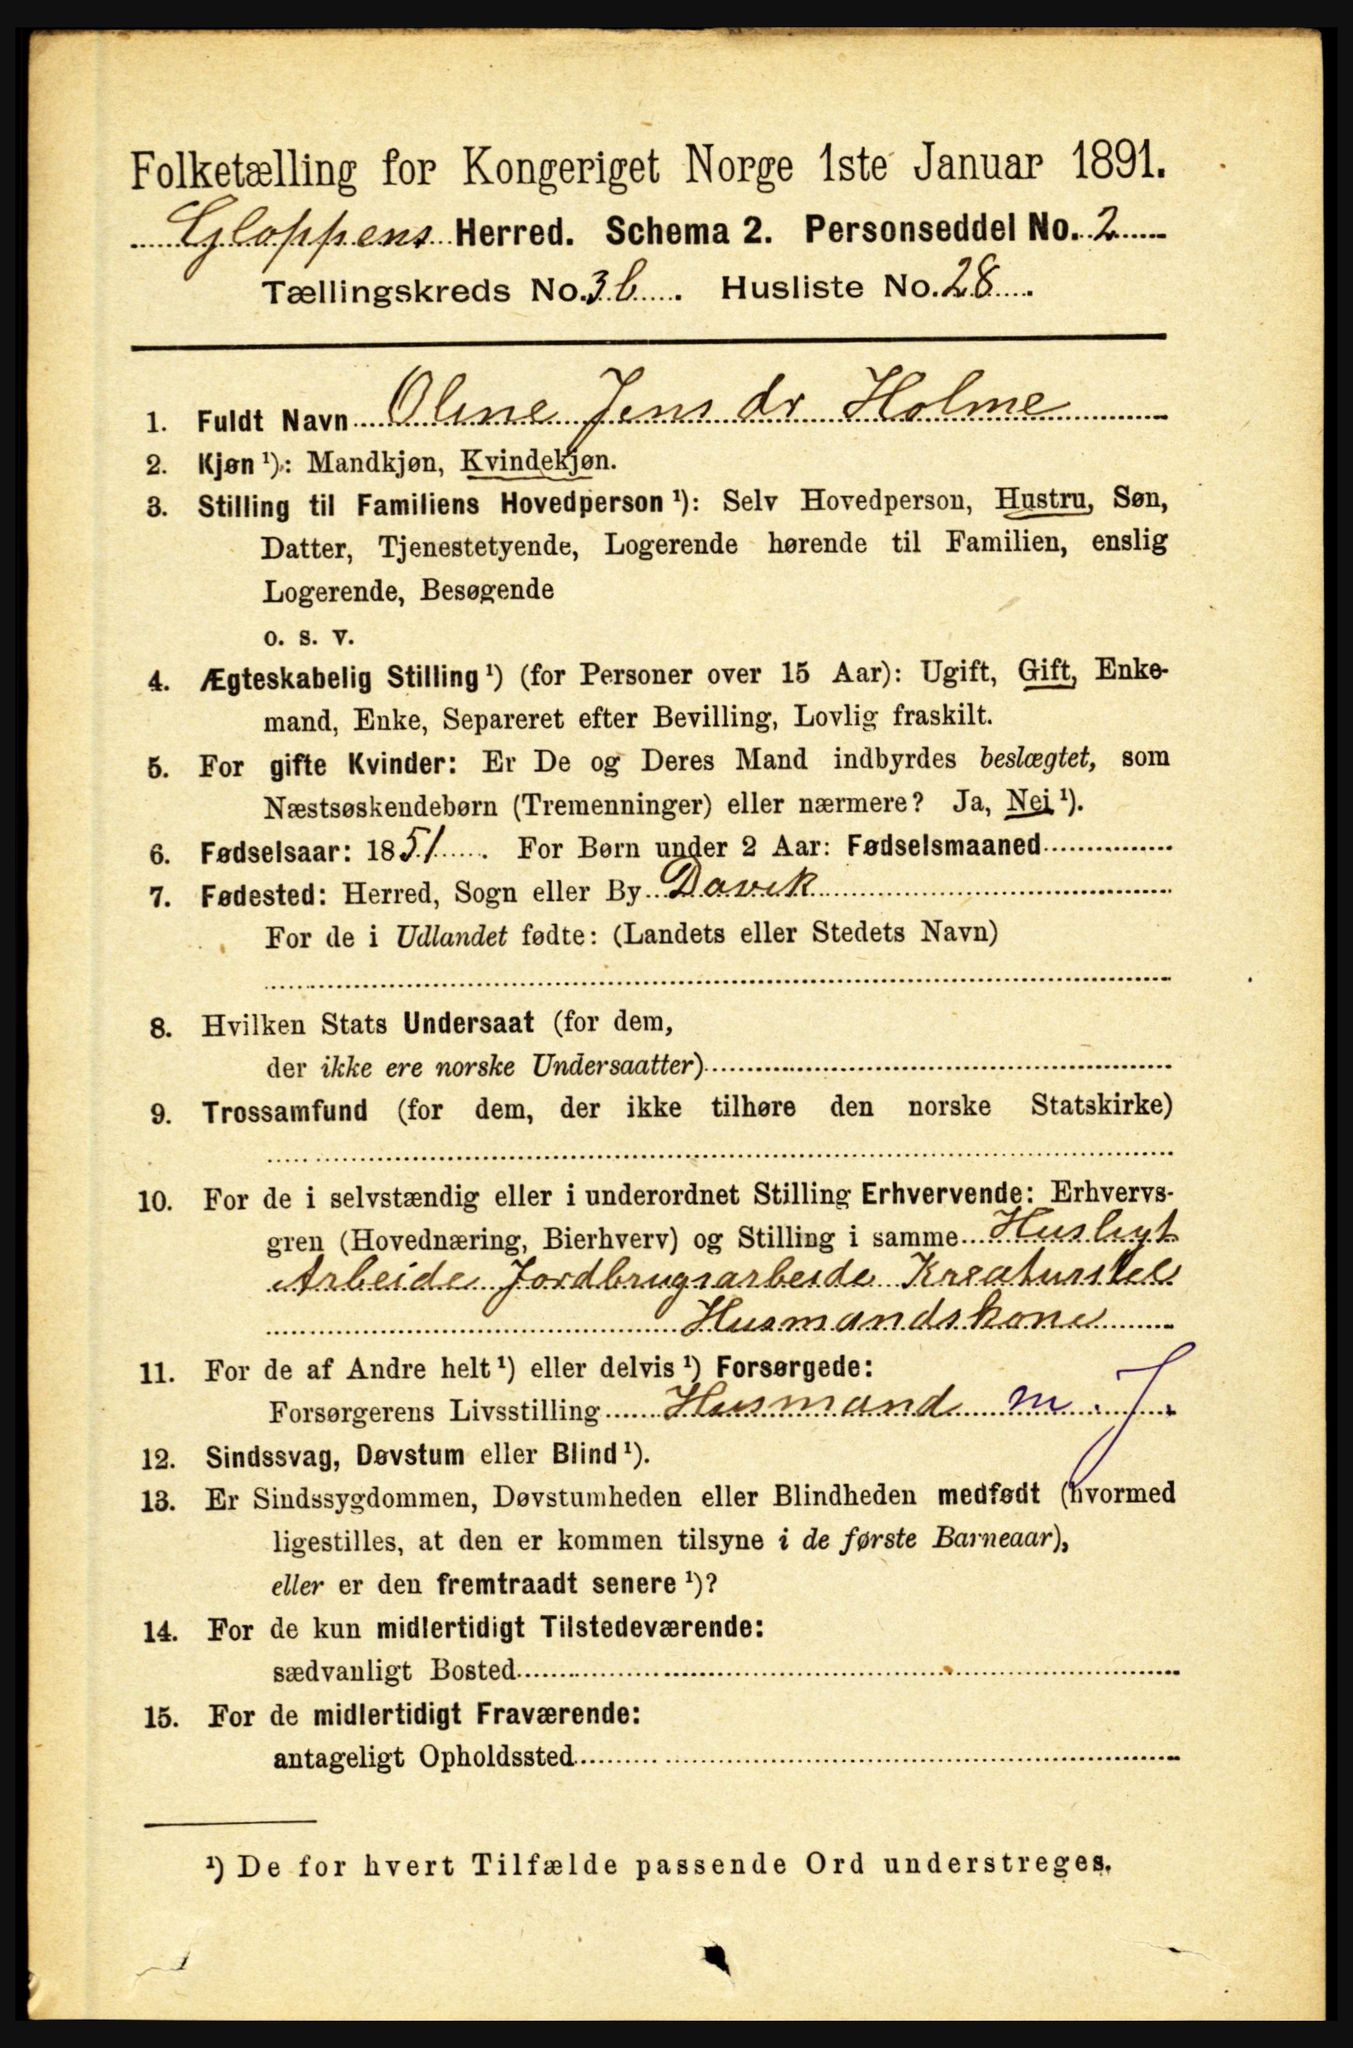 Folketælling for Kongeriget Norge 1ste Januar 1891.
Gloppens Herred. Schema 2. Personseddel No. 2
Tællingskreds No. 3b. Husliste No. 28.
1. Fuldt Navn Oline Jens dr Holme
2. Kjøn ¹): Mandkjøn, Kvindekjøn.
3. Stilling til Familiens Hovedperson ¹): Selv Hovedperson, Hustru, Søn,
Datter, Tjenestetyende, Logerende hørende til Familien, enslig
Logerende, Besøgende
o. s. v.
4. Ægteskabelig Stilling ¹) (for Personer over 15 Aar): Ugift, Gift, Enke-
mand, Enke, Separeret efter Bevilling, Lovlig fraskilt.
5. For gifte Kvinder: Er De og Deres Mand indbyrdes beslægtet, som
Næstsøskendebørn (Tremenninger) eller nærmere? Ja, Nei ¹).
6. Fødselsaar: 1851. For Børn under 2 Aar: Fødselsmaaned
7. Fødested: Herred, Sogn eller By Davik
For de i Udlandet fødte: (Landets eller Stedets Navn)
8. Hvilken Stats Undersaat (for dem,
der ikke ere norske Undersaatter)
9. Trossamfund (for dem, der ikke tilhøre den norske Statskirke)
10. For de i selvstændig eller i underordnet Stilling Erhvervende: Erhvervs-
gren (Hovednæring, Bierhverv) og Stilling i samme Husligt
Arbeide Jordbrugsarbeide Kreaturstel
Husmandskone
11. For de af Andre helt ¹) eller delvis ¹) Forsørgede:
Forsørgerens Livsstilling Husmand m. J.
12. Sindssvag, Døvstum eller Blind ¹).
13. Er Sindssygdommen, Døvstumheden eller Blindheden medfødt (hvormed
ligestilles, at den er kommen tilsyne i de første Barneaar),
eller er den fremtraadt senere ¹)?
14. For de kun midlertidigt Tilstedeværende:
sædvanligt Bosted
15. For de midlertidigt Fraværende:
antageligt Opholdssted
¹) De for hvert Tilfælde passende Ord understreges.